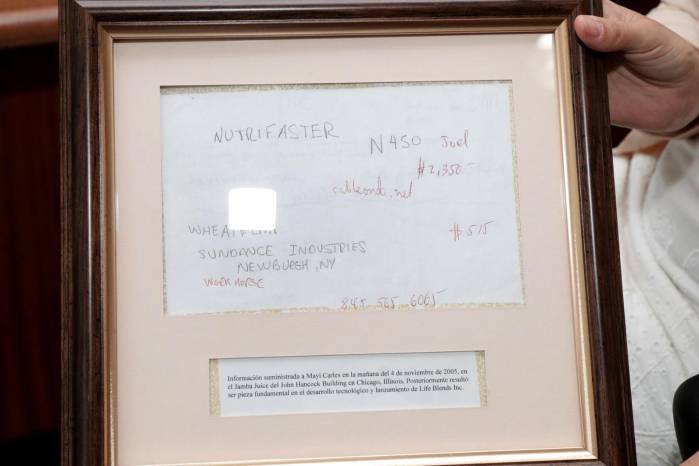 NUTRIFASTER N450 Joel
$2,350.-
WHEAT $515
SUNDANCE INDUSTRIES
NEWBURGH, NY
WORKHORSE
845 565 6065
Información suministrada a Mayi Carles en la mañana del 4 de noviembre de 2005, en
el Jamba Juice del John Hancock Building en Chicago, Illinois. Posteriormente resultó
ser pieza fundamental en el desarrollo tecnológico y lanzamiento de Life Blends Inc.